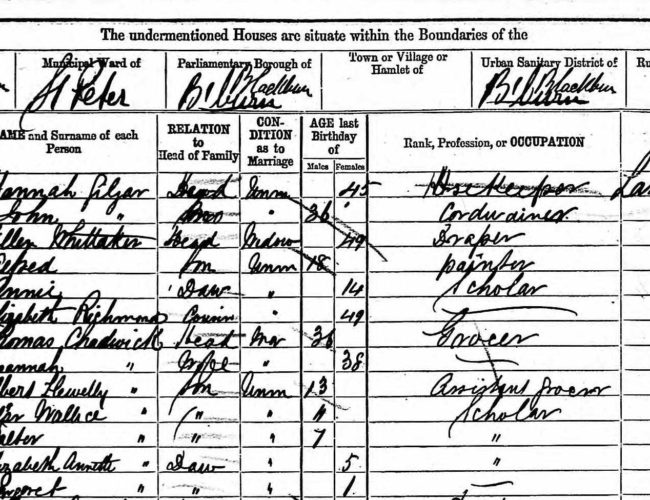 The undermentioned Houses are situate within the Boundaries of the
Municipal Ward of Parliamentary Borough of Town or Village or Hamlet of Urban Sanitary District of Ru
St Peter Blackburn Blackburn
AME and Surname of each Person RELATION to Head of Family CON-DITION as to Marriage AGE last Birthday of Males Females Rank, Profession, or OCCUPATION
annah Head Unm 45 Housekeeper La
John " " 36 Cordwainer
llen Whittaker Head Widow 49 Draper
lfred Son Unm 18 painter
nnie Daw " 14 Scholar
lizabeth Richmond Cousin " 49
homas Chadwick Head Mar 36 Grocer
annah " Wife " 38
bert Llewelly " Son Unm 13 Assistant grocer
Wallace " " " 11 Scholar
alter " " " 7 "
izabeth Annette " Daw " 5 "
garet " " " 1